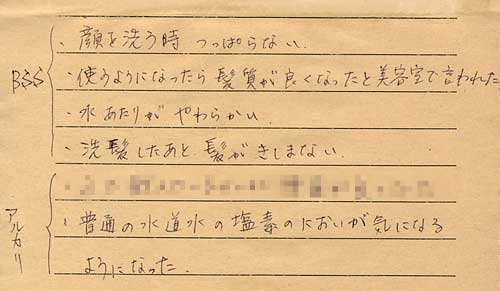 BSS
・顔を洗う時 つっぱらない.
・使うようになったら髪質が良くなったと美容室で言われた
・水あたりが やわらかい.
・洗髪したあと、髪がきしまない.
アルカリ
・普通の水道水の塩素のにおいが気になる
ようになった.